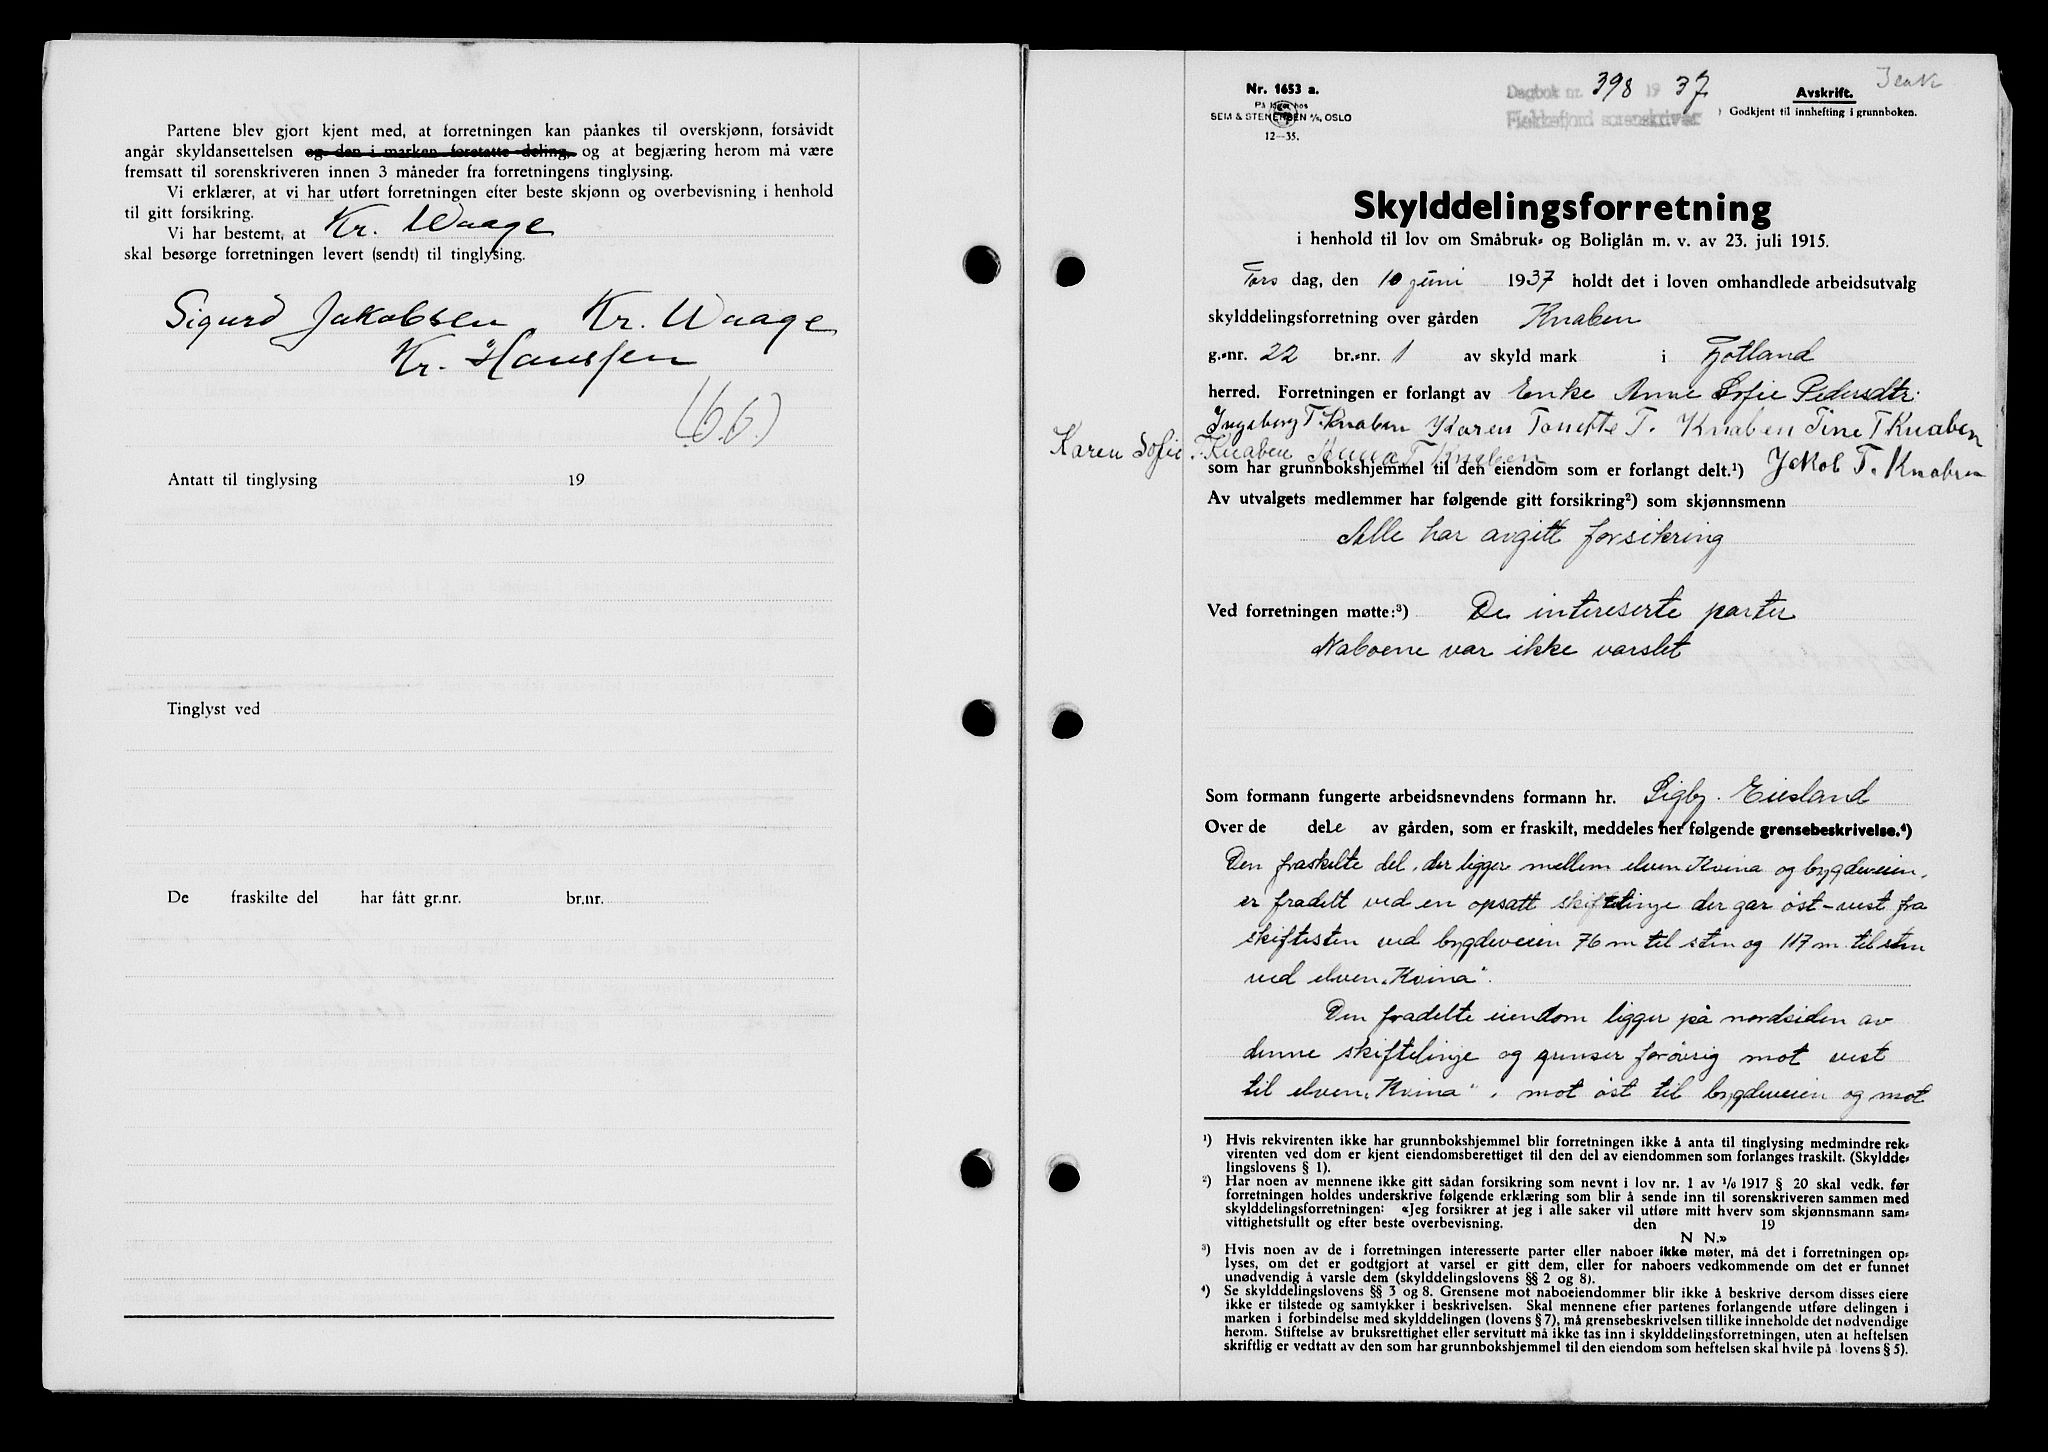 Partene blev gjort kjent med, at forretningen kan påankes til overskjønn, forsåvidt
angår skyldansettelsen og den i marken foretatte deling, og at begjæring herom må være
fremsatt til sorenskriveren innen 3 måneder fra forretningens tinglysing.
Vi erklærer, at vi har utført forretningen efter beste skjønn og overbevisning i henhold
til gitt forsikring.
Vi har bestemt, at Kr. Waage
skal besørge forretningen levert (sendt) til tinglysing.
Sigurd Jakobsen Kr. Waage
Kr. Hanssen
(6.6.)
Antatt til tinglysing 19
Tinglyst ved
De fraskilte del har fått gr.nr. br.nr.
Nr. 1653 a.
På lager hos
SEM & STENERSEN A/S, OSLO
12—35.
Dagbok nr. 398 19 37
Flekkefjord sorenskriver
Avskrift.
Godkjent til innhefting i grunnboken.
Skylddelingsforretning
i henhold til lov om Småbruk- og Boliglån m. v. av 23. juli 1915.
Tors dag, den 10 juni 1937 holdt det i loven omhandlede arbeidsutvalg
skylddelingsforretning over gården Knaben
g.-nr. 22 br.-nr. 1 av skyld mark i Fjotland
herred. Forretningen er forlangt av Enke Anne Sofie Pedersdtr.
Ingeborg T. Knaben Karen Tonette T. Knaben Tine T Knaben
Karen Sofie T. Knaben Anna T Knaben
som har grunnbokshjemmel til den eiendom som er forlangt delt.¹) Jakob T. Knaben
Av utvalgets medlemmer har følgende gitt forsikring²) som skjønnsmenn
Alle har avgitt forsikring
Ved forretningen møtte:³) De intereserte parter
Naboene var ikke varslet
Som formann fungerte arbeidsnevndens formann hr. Sigbj. Eiesland
Over de dele av gården, som er fraskilt, meddeles her følgende grensebeskrivelse.⁴)
Den fraskilte del, der ligger mellem elven Kvina og bygdeveien,
er fradelt ved en opsatt skiftelinje der gar øst-vest fra
skiftesten ved bygdeveien 76 m til sten og 117 m til sten
ved elven „Kvina".
Den fradelte eiendom ligger på nordsiden av
denne skiftelinje og grenser forøvrig mot vest
til elven „Kvina", mot øst til bygdeveien og mot
¹) Hvis rekvirenten ikke har grunnbokshjemmel blir forretningen ikke å anta til tinglysing medmindre rek-
virenten ved dom er kjent eiendomsberettiget til den del av eiendommen som forlanges fraskilt. (Skyldde-
lingslovens § 1).
²) Har noen av mennene ikke gitt sådan forsikring som nevnt i lov nr. 1 av 1/6 1917 § 20 skal vedk. før
forretningen holdes underskrive følgende erklæring som blir å sende inn til sorenskriveren sammen med
skylddelingsforretningen: «Jeg forsikrer at jeg i alle saker vil utføre mitt hverv som skjønnsmann sam-
vittighetsfullt og efter beste overbevisning. den 19
N N.»
³) Hvis noen av de i forretningen interesserte parter eller naboer ikke møter, må det i forretningen op-
lyses, om det er godtgjort at varsel er gitt dem, eller for naboers vedkommende om det er funnet
unødvendig å varsle dem (skylddelingslovens §§ 2 og 8).
⁴) Se skylddelingslovens §§ 3 og 8. Grensene mot naboeiendommer blir ikke å beskrive dersom disses eiere
ikke er tilstede og samtykker i beskrivelsen. Skal mennene efter partenes forlangende utføre delingen i
marken i forbindelse med skylddelingen (lovens § 7), må grensebeskrivelsen tillike inneholde det nødvendige
herom. Stiftelse av bruksrettighet eller servitutt må ikke tas inn i skylddelingsforretningen, uten at heftelsen
skriftlig er vedtatt av den som har grunnbokshjemmel til den eiendom som heftelsen skal hvile på (lovens § 5).